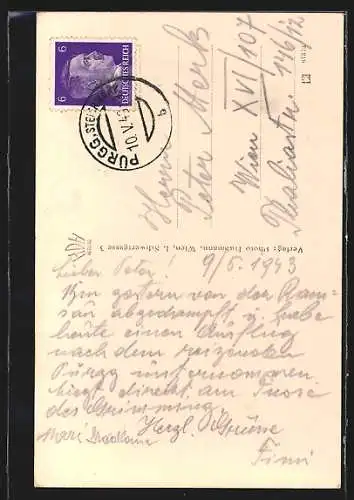 6
6
DEUTSCHES REICH
PÜRGG, STE
10.V.43
b
Herrn
Peter Merk
Wien XVI/107
146/12
Verlag: Photo Wien, I. Schwertgasse 3
Lieber Peter! 9/5. 1943
Bin gestern von der Ram-
sau abgedampft u. habe
heute einen Ausflug
nach dem reizenden
Pürgg unternommen
liegt direkt am Fusse
des Grimming.
Herzl. Grüsse
Mari
Finni